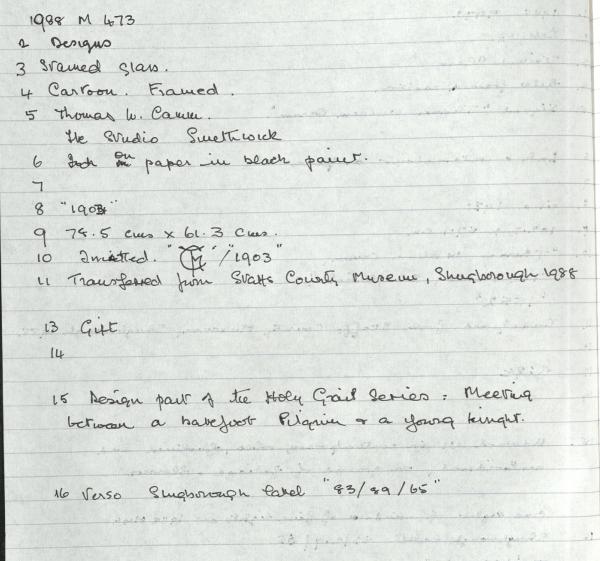 1988 M 473
2 Designs
3 Stained glass.
4 Cartoon. Framed.
5 Thomas W. Camm.
The Studio Smethwick
6 on paper in black paint.
7
8 "1903"
9 78.5 cms x 61.3 cms.
10 " M " / "1903"
11 Transferred from Staffs County Museum, Shugborough 1988
13 Gift
14
15 Design part of the Holy Grail Series: Meeting
between a barefoot Pilgrim & a young knight.
16 Verso Shugborough label "83/89/65"